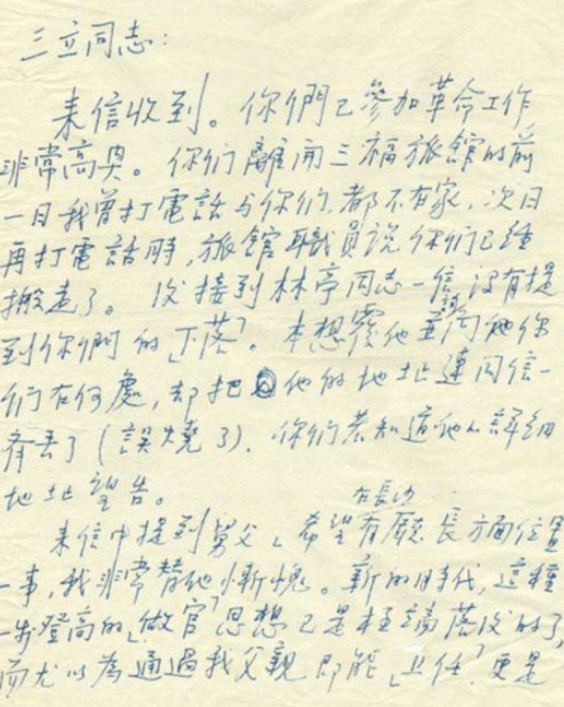 三立同志：
来信收到。你們已參加革命工作，
非常高興。你们離開三福旅館的前
一日我曾打電話与你们，都不在家，次日
再打電話時，旅館職員説你们已經
搬走了。後接到林亭同志一信，没有提
到你們的「下落」。本想復他並詢他你
们在何處，却把他的地址連同信一
齊丢了（誤燒了）。你们若知道他的詳細
地址望告。
在長沙
来信中提到舅父「希望在長沙有廳長方面位置」
一事，我非常替他慚愧。新的時代，這種
一步登高的「做官」思想已是極端落後的了，
而尤以為通過我父親即能「上任」，更是